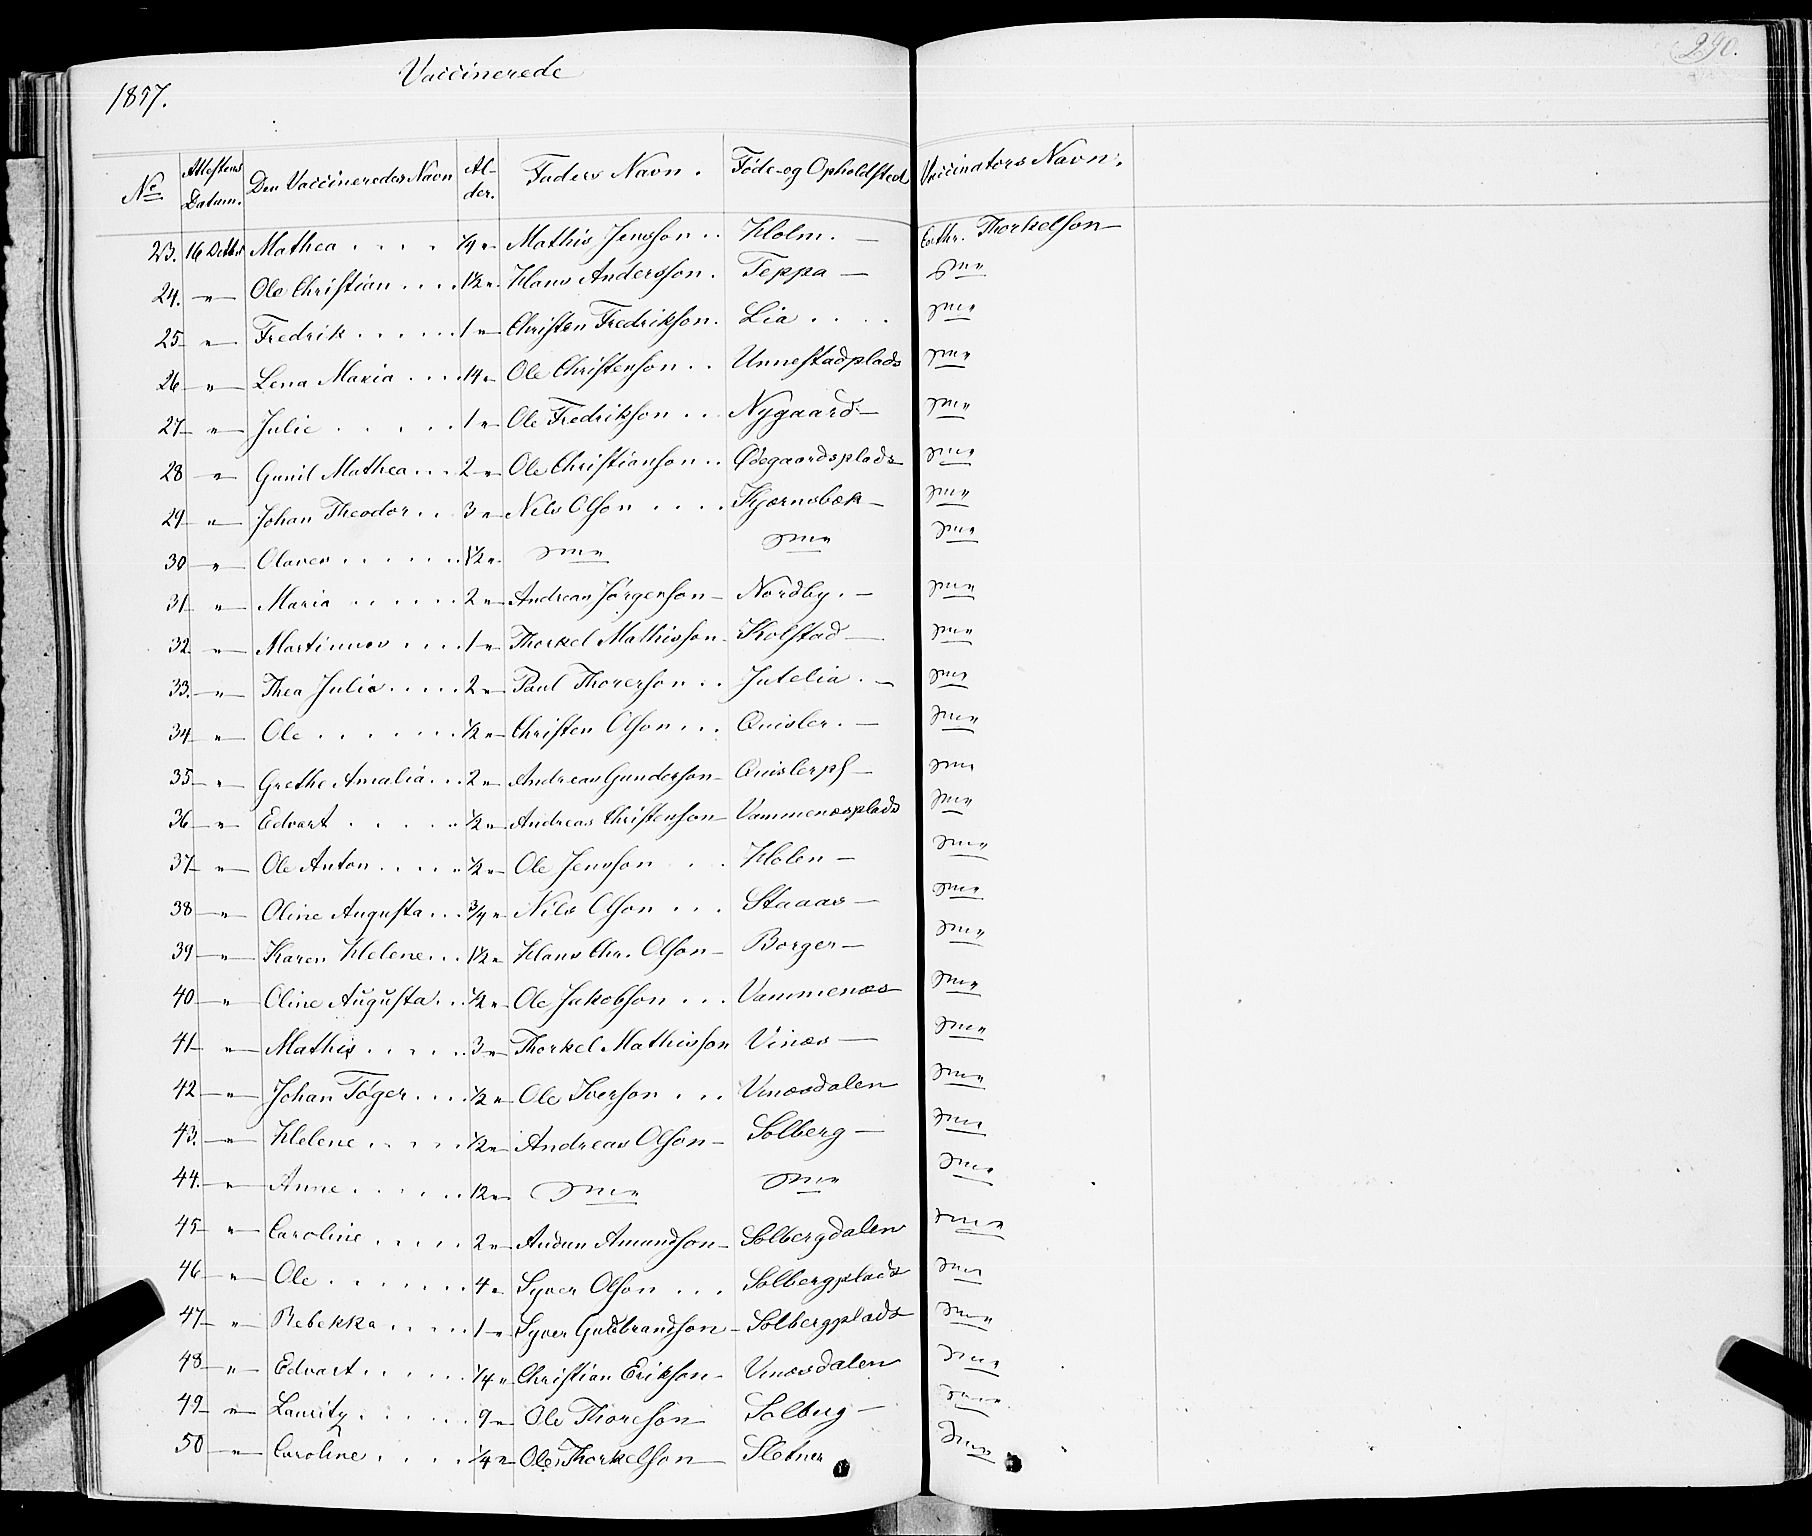 Vaccinerede
1857.
290.
No Attestens Datum. Den Vaccineredes Navn Al-der. Faders Navn. Føde- og Opholdsted Vaccinators Navn.
23. 16 Octbr Mathea . . . . ¼ " Mathis Jensson . . Holm. — Cathr. Thorkelson
24. " Ole Christian . . . . 1½ " Hans Andersson. Teppa — Do
25 " Fredrik . . . . . . 1 " Christen Fredrikson. Lia . . . . Do
26 " Lena Maria . . . . 14 " Ole Christenson . . Unnestadplads Do
27 " Julie . . . . . . 1 " Ole Fredrikson . . . Nygaard — Do
28 " Gunil Mathea . . . 2 " Ole Christianson . . Ødegaardsplads Do
29 " Johan Theodor . . 3 " Nils Olson . . . . Kjærnsbæk — Do
30 " Olaves . . . . . . 1½ " Do Do Do
31 " Maria . . . . . . 2 " Andreas Jørgenson — Nordby. — Do
32 " Martinus . . . . 1 " Thorkel Mathisson — Kolstad — Do
33. " Thea Julia . . . . . 2 " Paul Thorerson . . Jutelia . — Do
34 " Ole . . . . . . . ½ " Christen Olson . . . Quisler . — Do
35 " Grethe Amalia . . . 2 " Andreas Gunderson — Quislerpl — Do
36 " Edvart . . . . . . ½ " Andreas Christenson — Vammenæsplads Do
37 " Ole Anton . . . . . ½ " Ole Jensson . . . Holen — Do
38 " Oline Augusta . . . ¾ " Nils Olson . . . Staaas — Do
39 " Karen Helene . . . 1½ " Hans Chr. Olson — Borger — Do
40 " Oline Augusta . . . ½ " Ole Jakobson . . . Vammenæs Do
41 " Mathis . . . . . . 3 " Thorkel Mathisson Vinæs — Do
42 " Johan Tøger . . . . ½ " Ole Iverson . . . Vinæsdalen Do
43. " Helene . . . . . ½ " Andreas Olson — Solberg — Do
44. " Anne . . . . . 12 " Do Do Do
45 " Caroline . . . . . 2 " Audun Amundson — Solbergdalen Do
46 " Ole . . . . . . . 4 " Syver Olson . . . Solbergplads Do
47 " Rebekka . . . . . 1 " Syver Guldbrandson — Solbergplads Do
48 " Edvart . . . . . . ¼ " Christian Erikson — Vinæsdalen Do
49 " Lauritz . . . . . . 9 " Ole Thoreson — Solberg — Do
50 " Caroline . . . . . ¼ " Ole Thorkelson — Sletner Do